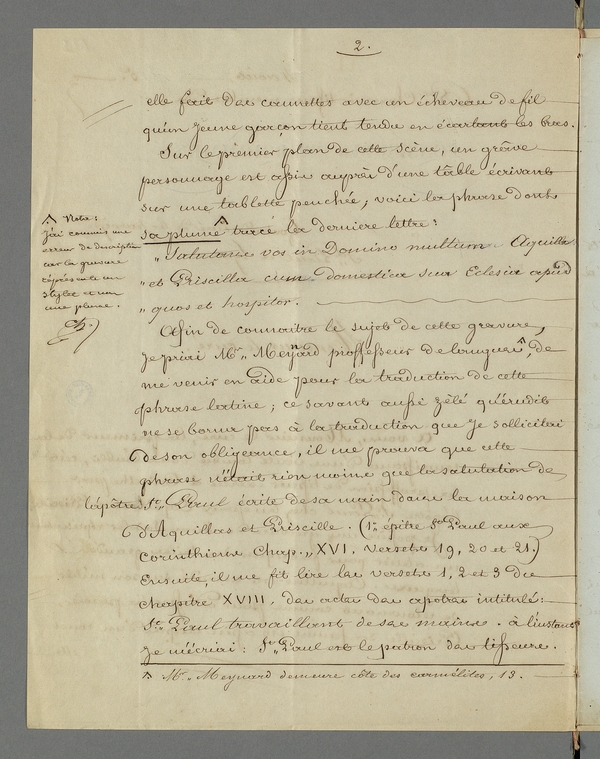 2.
elle fait des cannettes avec un écheveau de fil
qu'un jeune garçon tient tendu en écartant les bras.
Sur le prémier plan de cette scène, un grâve
personnage est assis auprès d'une tâble écrivant
sur une tablette penchée, voici la phrase dont
sa plume ^ tracé la derniere lettre:
^ Note:
J'ai commis une
erreur de description
car la gravure
représente un
stylet et non
une plume.
"Salutant vos in Domino multum Aquilla
"et Priscilla cum domestica sua Eclesia apud
"quos et hospitor.
Afin de connaitre le sujet de cette gravure,
je priai Mr. Meynard proffesseur de langues ^, de
me venir en aide pour la traduction de cette
phrase latine; ce savant aussi zélé qu'érudit
ne se borna pas à la traduction que je sollicitai
de son obligeance, il me prouva que cette
phrase n'était rien moins que la salutation de
l'apôtre St. Paul écrite de sa main dans la maison
d'Aquillas et Priscille. (1re épitre St Paul aux
Corinthiens Chap. XVI. Versets 19, 20 et 21.)
Ensuite, il me fit lire les versets 1, 2 et 3 du
chapitre XVIII. des actes des apotres intitulé:
St. Paul travaillant de ses mains. à l'instant
je m'écriai: St. Paul est le patron des tisseurs.
^ Mr. Meynard demeure côte des carmélites, 13.